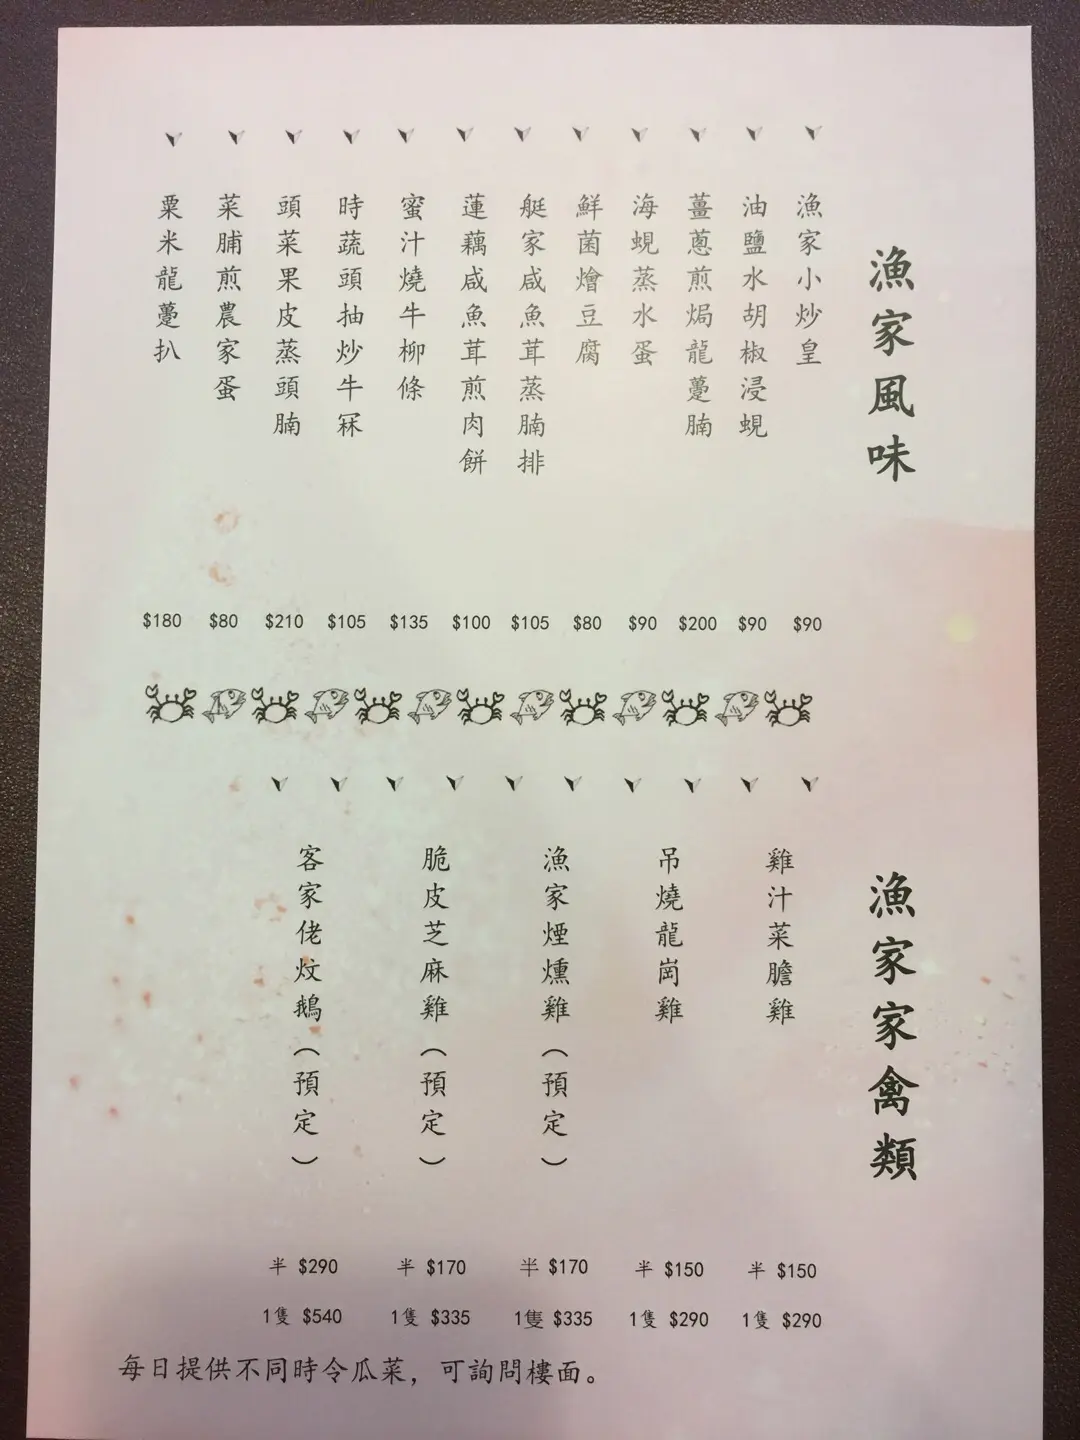 漁家風味
漁家小炒皇
$90
油鹽水胡椒浸蜆
$90
薑蔥煎焗龍躉腩
$200
海蜆蒸水蛋
$90
鮮菌燴豆腐
$80
艇家咸魚茸蒸腩排
$105
蓮藕咸魚茸煎肉餅
$100
蜜汁燒牛柳條
$135
時蔬頭抽炒牛冧
$105
頭菜果皮蒸頭腩
$210
菜脯煎農家蛋
$80
粟米龍躉扒
$180
漁家家禽類
雞汁菜膽雞
半 $150
1隻 $290
吊燒龍崗雞
半 $150
1隻 $290
漁家煙燻雞(預定)
半 $170
1隻 $335
脆皮芝麻雞(預定)
半 $170
1隻 $335
客家佬炆鵝(預定)
半 $290
1隻 $540
每日提供不同時令瓜菜，可詢問樓面。